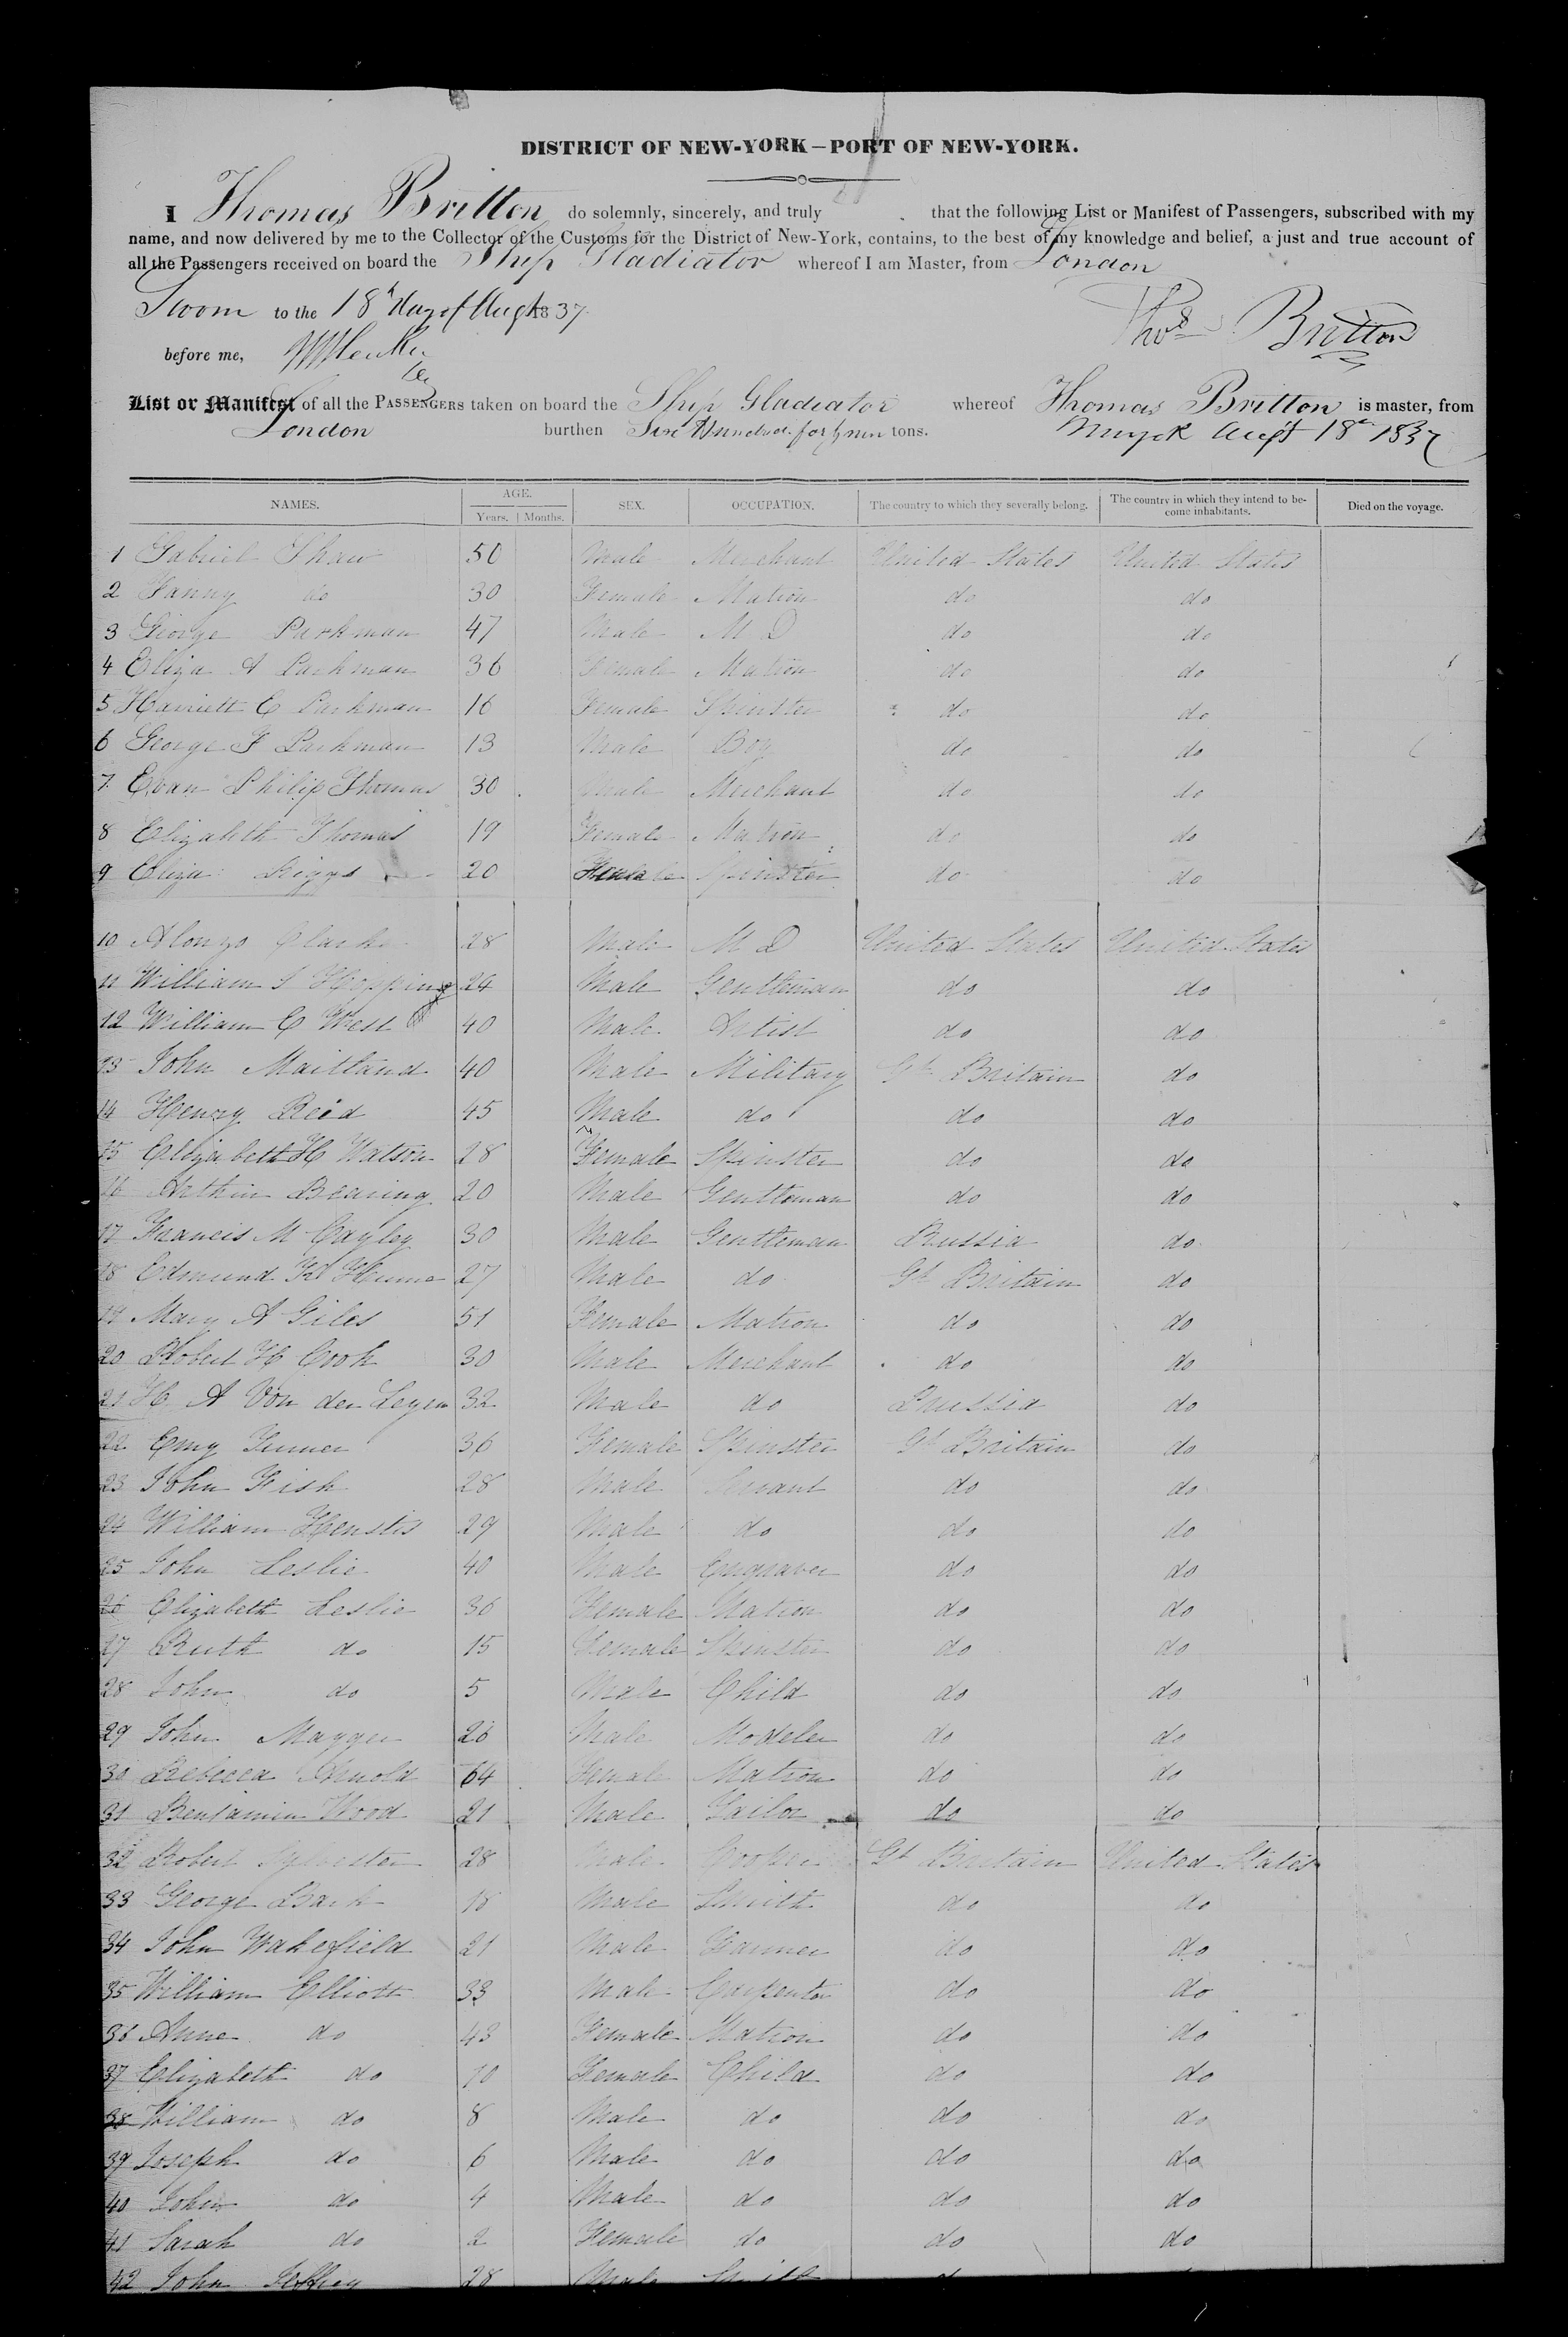 DISTRICT OF NEW-YORK—PORT OF NEW-YORK.
I Thomas Britton do solemnly, sincerely, and truly that the following List or Manifest of Passengers, subscribed with my
name, and now delivered by me to the Collector of the Customs for the District of New-York, contains, to the best of my knowledge and belief, a just and true account of
all the Passengers received on board the Ship Gladiator whereof I am Master, from London
Sworn to the 18th day of Augt 1837.
Thos Britton
before me,
List or Manifest of all the PASSENGERS taken on board the Ship Gladiator whereof Thomas Britton is master, from
London burthen Six Hundred forty nine tons. Augt 18th 1837
NAMES. AGE. SEX. OCCUPATION. The country to which they severally belong. The country in which they intend to be- Died on the voyage.
Years. Months. come inhabitants.
1 Gabriel Shaw 50 Male Merchant United States United States
2 Fanny do 30 Female Matron do do
3 George Parkman 47 Male M D do do
4 Eliza A Parkman 36 Female Matron do do
5 Harriett E Parkman 16 Female Spinster do do
6 George F Parkman 13 Male Boy do do
7 Evan Philip Thomas 30 Male Merchant do do
8 Elizabeth Thomas 19 Female Matron do do
9 Eliza Riggs 20 Female Spinster do do
10 Alonzo Clarke 28 Male M D United States United States
11 William S Hopping 24 Male Gentleman do do
12 William E West 40 Male Artist do do
13 John Maitland 40 Male Military Gt Britain do
14 Henry Reid 45 Male do do do
15 Elizabeth H Watson 28 Female Spinster do do
16 Arthur Bearing 20 Male Gentleman do do
17 Francis M Cayley 30 Male Gentleman Russia do
18 Edmund 27 Male do Gt Britain do
19 Mary A Giles 51 Female Matron do do
20 Robert H Cook 30 Male Merchant do do
21 H A Von der Leyen 32 Male do Prussia do
22 Emy 36 Female Spinster Gt Britain do
23 John Fish 28 Male Servant do do
24 William 29 Male do do do
25 John Leslie 40 Male Engraver do do
26 Elizabeth Leslie 36 Female Matron do do
27 Ruth do 15 Female Spinster do do
28 John do 5 Male Child do do
29 John 26 Male Modeler do do
30 Rebecca Arnold 64 Female Matron do do
31 Benjamin Wood 21 Male Tailor do do
32 Robert Sylvester 28 Male Cooper Gt Britain United States
33 George 18 Male Smith do do
34 John Wakefield 21 Male Farmer do do
35 William Elliott 33 Male Carpenter do do
36 Anne do 43 Female Matron do do
37 Elizabeth do 10 Female Child do do
38 William do 8 Male do do do
39 Joseph do 6 Male do do do
40 John do 4 Male do do do
41 Sarah do 2 Female do do do
42 John 28 Male Smith